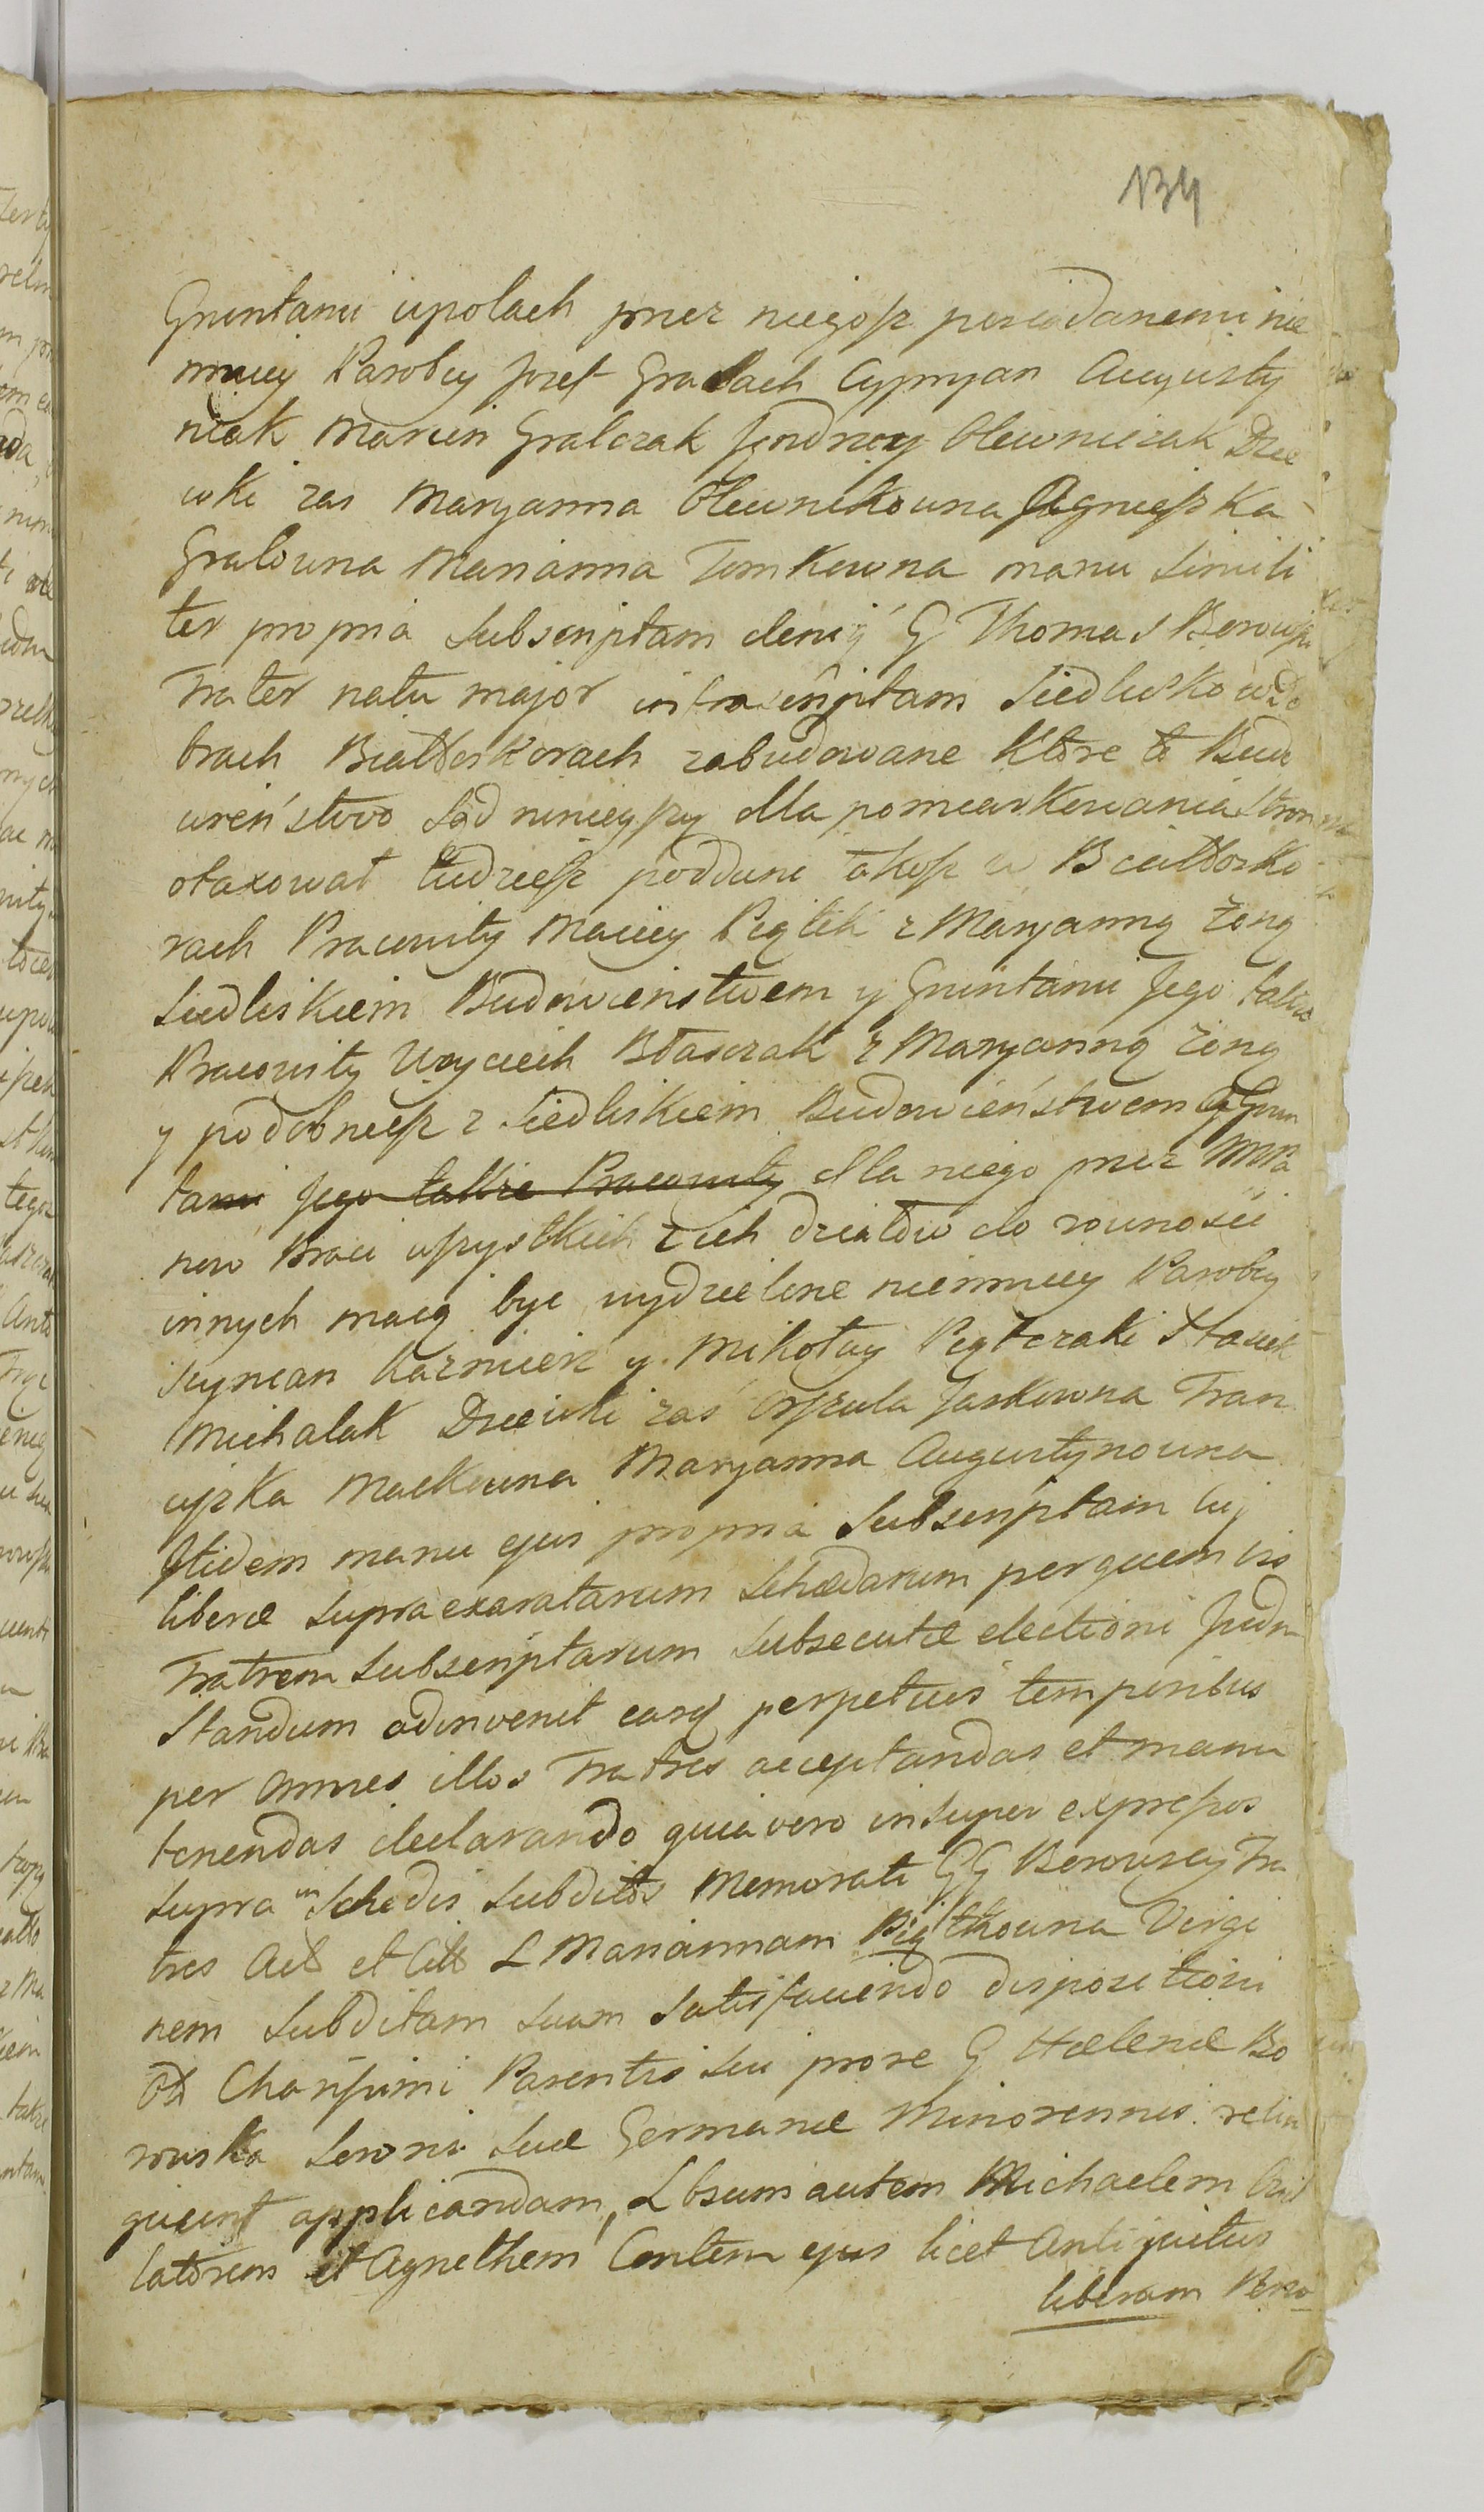 134
Gruntami ypolach przez niegosz posiadanemi nie
mniey Parobcy Jozef Gralach Cypryan Augusty
niak Marcin Gralczak Jendrzey Olewniczak Dzie
wki zas Maryanna Olewnikowna Agnieszka
Gralowna Marianna Tomkowna manu simili
ter propria subscriptam denig G Thomas Borowski
Frater natu major infrascriptam Siedlisko wdo
brach Białboskorach zabudowane ktore to Budo
wieństwo Sąd ninieyszy dla pomiarkowania stron
otaxował tudziesz poddani takosz w Białbosko
rach Pracowity Maciey Piątek z Maryanną żoną
Siedliskiem Budowienstwem y Gruntami Jego także
Pracowity Woyciech Błasczak z Maryanną żoną
y podobniesz z Siedliskiem Budowieństwem y Grun
tami Jego także Pracowity dla niego przez WWPa
now Braci wszystkich z ich działow do rowności
innych maią byc wydzielone niemniey Parobcy
Szymean Kazmierz y Mikołay Piątczaki Stasiek
Michalak Dziewki zas Orszula Jaskowna Fran
ciszka Mackowna Maryanna Augustynowna
Itidem manu ejus propria subscriptam cuj
liberæ supraexaratarum Schædarum perquemvis
Fratrem subscriptarum subsecutæ electioni Judm
Standum adinvenit easq perpetuis temporibus
per omnes illos Fratres acceptandas et manu
tenendas declarando quia vero insuper expressos
supra in Schedis subditos Memorati GG Borowscy Fra
tres Act et Citt L Mariannam Piątkowna Virgi
nem subditam suam satisfaciendo dispositioni
Ol Charissimi Parentis sui prore G Hælenæ Bo
rowska Sorori suæ Germanæ Minorennis relin
quunt applicandam, Lbsum autem Michaelem
latorem et Agnethem Contem ejus licet Antiquitus
liberam Perso